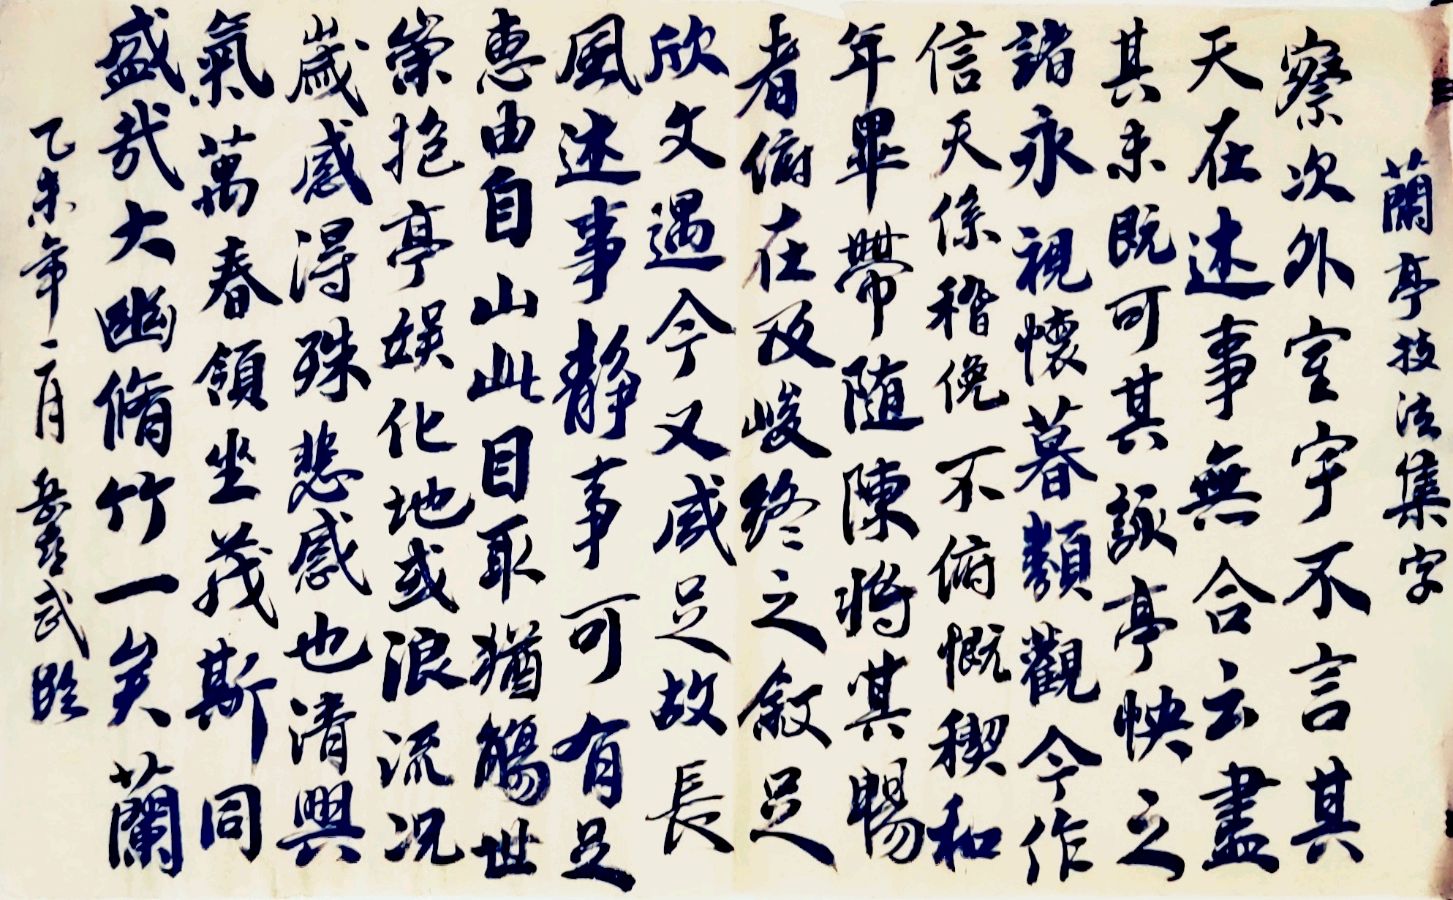 蘭亭技法集字
察次外室宇不言其
天在述事無合云盡
其未既可其詠亭怏之
諸永視懷暮類觀今作
信天係稽俛不俯慨稧和
年畢帶随陳將其暢
看俯在及峻終之敘足
欣文遇今又咸足故長
風述事靜事可有足
惠由自山此目取猶觴世
崇抱亭娱化地或浪流况
歲感得殊悲感也清興
氣萬春領坐茂斯同
盛哉大幽脩竹一矣蘭
乙未年二月